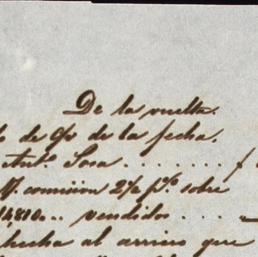 De la vuelta.
de c/o de la fecha.
Ant.º Sosa . . . . . . .
comision 2½ p.% sobre
14,810 .. vendidos . . . .
hecha al arrivo que